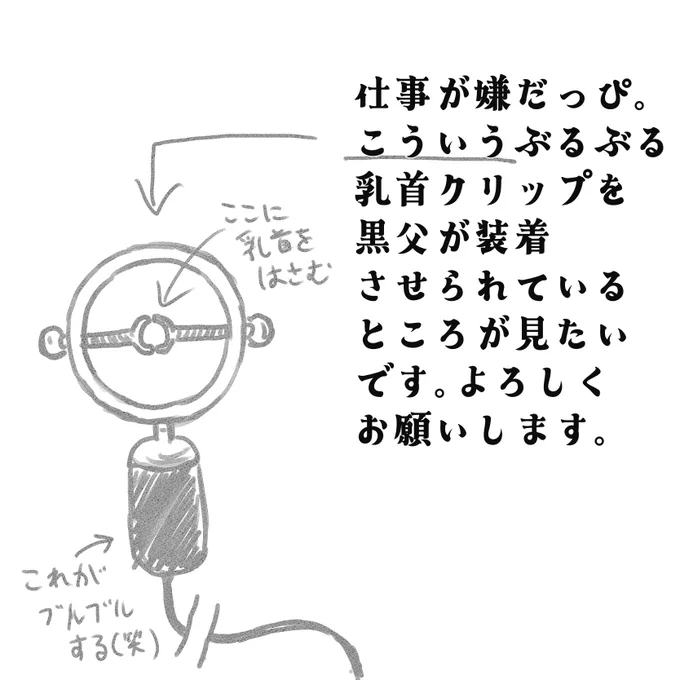 仕事が嫌だっぴ。
こういうぶるぶる
乳首クリップを
黒父が装着
させられている
ところが見たい
です。よろしく
お願いします。
ここに
乳首を
はさむ
これが
ブルブル
する(笑)